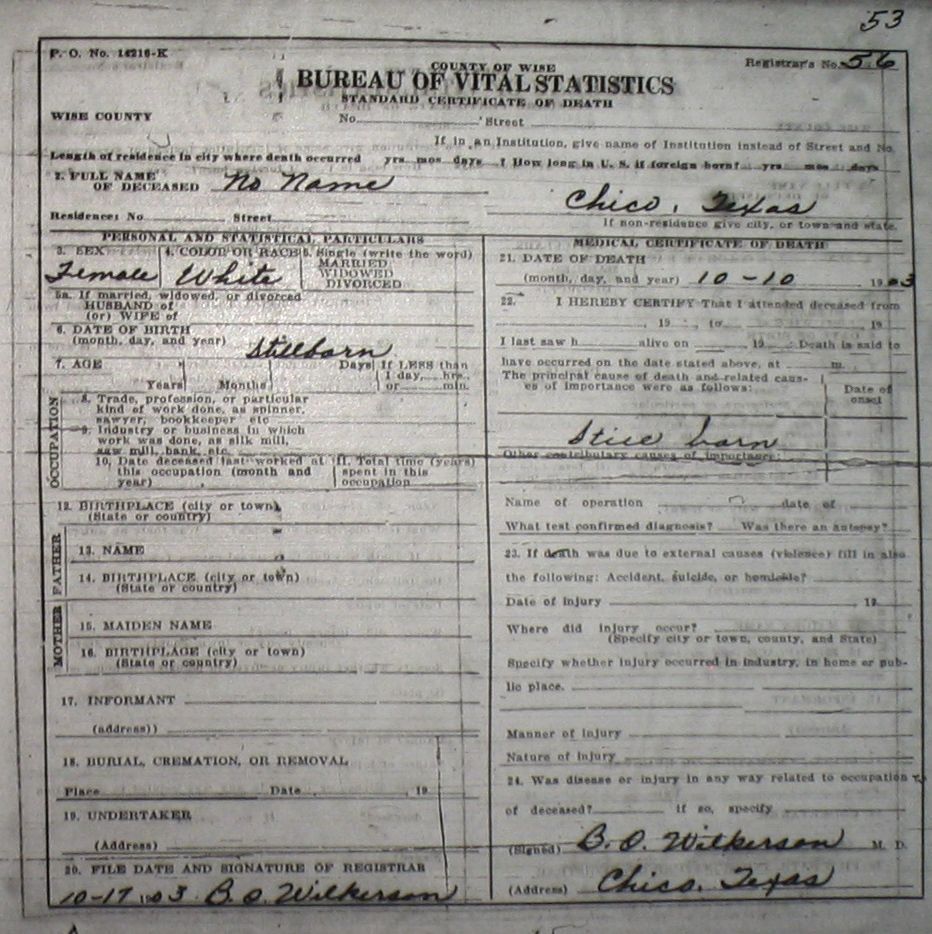 53
P. O. No. 14216-K
COUNTY OF WISE
Registrar's No. 56
BUREAU OF VITAL STATISTICS
STANDARD CERTIFICATE OF DEATH
WISE COUNTY
No. Street
If in an Institution, give name of Institution instead of Street and No.
Length of residence in city where death occurred yrs mos days ? How long in U. S. if foreign born? yrs mos days
2. FULL NAME
OF DECEASED No Name
Chico, Texas
Residence: No Street
If non-residence give city, or town and state.
PERSONAL AND STATISTICAL PARTICULARS
3. SEX 4. COLOR OR RACE 5. Single (write the word)
MARRIED
WIDOWED
DIVORCED
Female White
5a. If married, widowed, or divorced
HUSBAND of
(or) WIFE of
6. DATE OF BIRTH
(month, day, and year) Stillborn
7. AGE
Years Months Days If LESS than
1 day, hrs.,
or min.
OCCUPATION
8. Trade, profession, or particular
kind of work done, as spinner,
sawyer, bookkeeper etc
9. Industry or business in which
work was done, as silk mill,
saw mill, bank, etc.
10. Date deceased last worked at
this occupation (month and
year)
11. Total time (years)
spent in this
occupation
12. BIRTHPLACE (city or town)
(State or country)
FATHER
13. NAME
14. BIRTHPLACE (city or town)
(State or country)
MOTHER
15. MAIDEN NAME
16. BIRTHPLACE (city or town)
(State or country)
17. INFORMANT
(address))
18. BURIAL, CREMATION, OR REMOVAL
Place Date , 19
19. UNDERTAKER
(Address)
20. FILE DATE AND SIGNATURE OF REGISTRAR
10-17 1903 B. O. Wilkerson
MEDICAL CERTIFICATE OF DEATH
21. DATE OF DEATH
(month, day, and year) 10-10 1903
22. I HEREBY CERTIFY That I attended deceased from
, 19 , to , 19
I last saw h alive on 19 Death is said to
have occurred on the date stated above, at m.
The principal cause of death and related caus-
es of importance were as follows:
Date of
onset
Still born
Other contributory causes of importance:
Name of operation date of
What test confirmed diagnosis? Was there an autopsy?
23. If death was due to external causes (violence) fill in also
the following: Accident, suicide, or homicide?
Date of injury 19
Where did injury occur?
(Specify city or town, county, and State)
Specify whether injury occurred in industry, in home or pub-
lic place.
Manner of injury
Nature of injury
24. Was disease or injury in any way related to occupation
of deceased? if so, specify
(Signed) B. O. Wilkerson M. D.
(Address) Chico, Texas